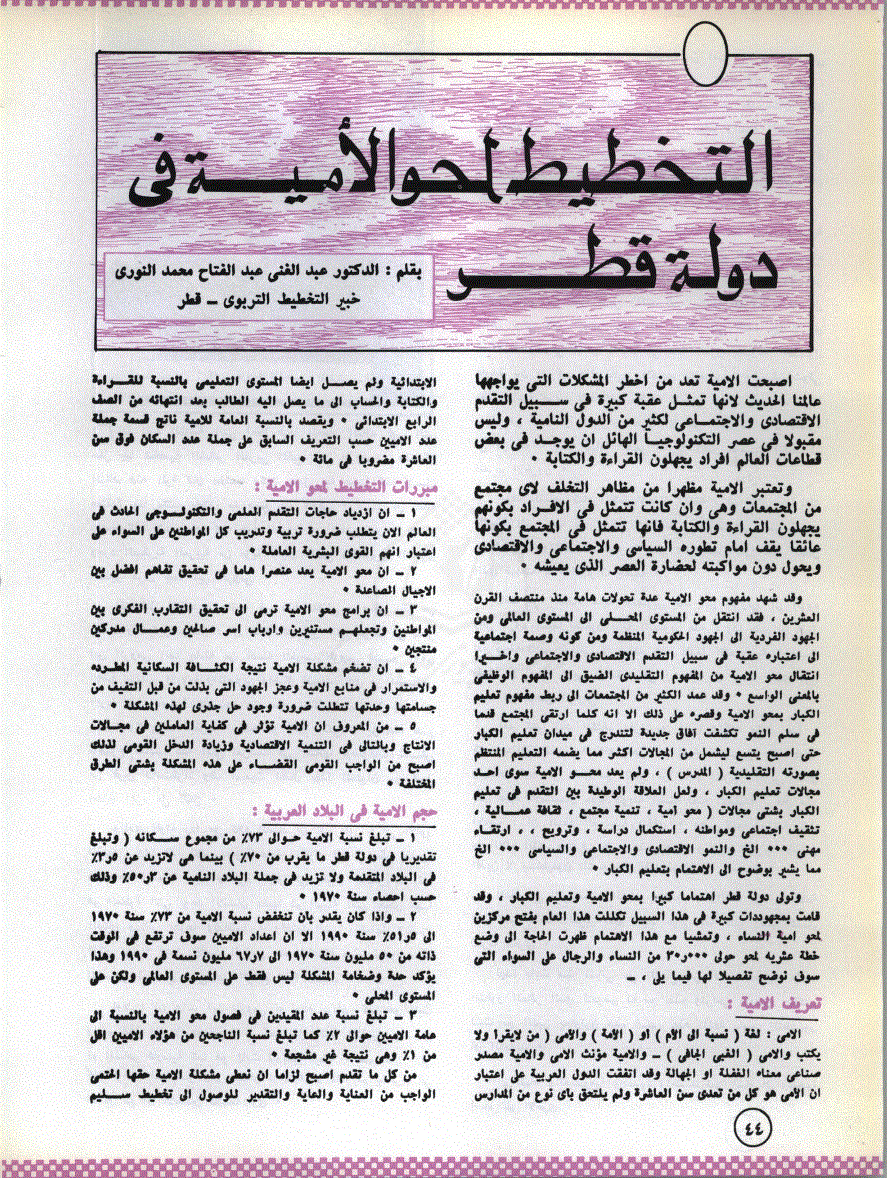 التخطيط لمحو الأمية في
دولة قطر
بقلم : الدكتور عبد الغنى عبد الفتاح محمد النورى
خبير التخطيط التربوى ــ قطر
اصبحت الامية تعد من اخطر المشكلات التى يواجهها
عالمنا الحديث لانها تمثل عقبة كبيرة فى سبيل التقدم
الاقتصادى والاجتماعى لكثير من الدول النامية ، وليس
مقبولا فى عصر التكنولوجيا الهائل ان يوجد فى بعض
قطاعات العالم افراد يجهلون القراءة والكتابة ٠
وتعتبر الامية مظهرا من مظاهر التخلف لاى مجتمع
من المجتمعات وهى وان كانت تتمثل فى الافراد بكونهم
يجهلون القراءة والكتابة فانها تتمثل فى المجتمع بكونها
عائقا يقف امام تطوره السياسى والاجتماعى والاقتصادى
ويحول دون مواكبته لحضارة العصر الذى يعيشه ٠
وقد شهد مفهوم محو الامية عدة تحولات هامة منذ منتصف القرن
العشرين ، فقد انتقل من المستوى المحلى الى المستوى العالمى ومن
الجهود الفردية الى الجهود الحكومية المنظمة ومن كونه وصمة اجتماعية
الى اعتباره عقبة فى سبيل التقدم الاقتصادى والاجتماعى واخيرا
انتقال محو الامية من المفهوم التقليدى الضيق الى المفهوم الوظيفى
بالمعنى الواسع ٠ وقد عمد الكثير من المجتمعات الى ربط مفهوم تعليم
الكبار بمحو الامية وقصره على ذلك الا انه كلما ارتقى المجتمع قدما
فى سلم النمو تكشفت آفاق جديدة لتندرج فى ميدان تعليم الكبار
حتى اصبح يتسع ليشمل من المجالات اكثر مما يضمه التعليم المنتظم
بصورته التقليدية ( المدرس ) ، ولم يعد محو الامية سوى احد
مجالات تعليم الكبار ، ولعل العلاقة الوطيدة بين التقدم فى تعليم
الكبار بشتى مجالات ( محو امية ، تنمية مجتمع ، ثقافة عمالية ،
تثقيف اجتماعى ومواطنه ، استكمال دراسة ، وترويح ، ، ارتقاء
مهنى ٠٠٠ الخ والنمو الاقتصادى والاجتماعى والسياسى ٠٠٠ الخ
مما يشير بوضوح الى الاهتمام بتعليم الكبار ٠
وتولى دولة قطر اهتماما كبيرا بمحو الامية وتعليم الكبار ، وقد
قامت بمجهودات كبيرة فى هذا السبيل تكللت هذا العام بفتح مركزين
لمحو امية النساء ، وتمشيا مع هذا الاهتمام ظهرت الحاجة الى وضع
خطة عشريه لمحو حوالى ٣٠٫٠٠٠ من النساء والرجال على السواء التى
سوف نوضح تفصيلا لها فيما يلى ، ــ
تعريف الامية :
الامى : لغة ( نسبة الى الأم ) او ( الأمة ) والأمى ( من لايقرأ ولا
يكتب والامى ( الغبى الجافى ) ــ والامية مؤنث الامى والامية مصدر
صناعى معناه الغفلة او الجهالة وقد اتفقت الدول العربية على اعتبار
ان الأمى هو كل من تعدى سن العاشرة ولم يلتحق بأى نوع من المدارس
الابتدائية ولم يصل ايضا المستوى التعليمى بالنسبة للقراءة
والكتابة والحساب الى ما يصل اليه الطالب بعد انتهائه من الصف
الرابع الابتدائى ٠ ويقصد بالنسبة العامة للامية ناتج قسمة جملة
عدد الاميين حسب التعريف السابق على جملة عدد السكان فوق سن
العاشرة مضروبا فى مائة ٠
مبررات التخطيط لمحو الامية :
١ ــ ان ازدياد حاجات التقدم العلمى والتكنولوجى الحادث فى
العالم الان يتطلب ضرورة تربية وتدريب كل المواطنين على السواء على
اعتبار انهم القوى البشرية العاملة ٠
٢ ــ ان محو الامية يعد عنصرا هاما فى تحقيق تفاهم افضل بين
الاجيال الصاعدة ٠
٣ ــ ان برامج محو الامية ترمى الى تحقيق التقارب الفكرى بين
المواطنين وتجعلهم مستنيرين وارباب اسر صالحين وعمال مدركين
منتجين ٠
٤ ــ ان تضخم مشكلة الامية نتيجة الكثافة السكانية المطرده
والاستمرار فى منابع الامية وعجز الجهود التى بذلت من قبل التفيف من
جسامتها وحدتها تتطلت ضرورة وجود حل جذرى لهذه المشكلة ٠
٥ ــ من المعروف ان الامية تؤثر فى كفاية العاملين فى مجالات
الانتاج وبالتالى فى التنمية الاقتصادية وزيادة الدخل القومى لذلك
اصبح من الواجب القومى القضاء على هذه المشكلة بشتى الطرق
المختلفة ٠
حجم الامية فى البلاد العربية :
١ ــ تبلغ نسبة الامية حوالى ٧٣٪ من مجموع سكانه ( وتبلغ
تقديريا فى دولة قطر ما يقرب من ٧٠٪ ) بينما هى لاتزيد عن ٣٫٥٪
فى البلاد المتقدمة ولا تزيد فى جملة البلاد النامية عن ٥٠٫٣٪ وذلك
حسب احصاء سنة ١٩٧٠ ٠
٢ ــ واذا كان يقدر بان تنخفض نسبة الامية من ٧٣٪ سنة ١٩٧٠
الى ٥١٫٥٪ سنة ١٩٩٠ الا ان اعداد الاميين سوف ترتفع فى الوقت
ذاته من ٥٠ مليون سنة ١٩٧٠ الى ٦٧٫٧ مليون نسمة فى ١٩٩٠ وهذا
يؤكد حدة وضخامة المشكلة ليس فقط على المستوى العالمى ولكن على
المستوى المحلى ٠
٣ ــ تبلغ نسبة عدد المقيدين فى فصول محو الامية بالنسبة الى
عامة الاميين حوالى ٢٪ كما تبلغ نسبة الناجحين من هؤلاء الاميين اقل
من ١٪ وهى نتيجة غير مشجعة ٠
من كل ما تقدم اصبح لزاما ان نعطى مشكلة الامية حقها الحتمى
الواجب من العناية والعاية والتقدير للوصول الى تخطيط سليم
٤٤